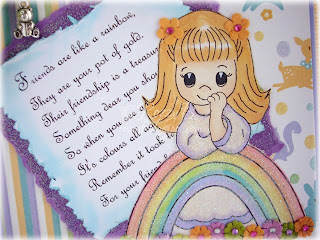 Friends are like a rainbow,
They are your pot of gold.
Their friendship is a treasure
Something dear you shou
So when you see a
It's colours all
Remember it took
For your